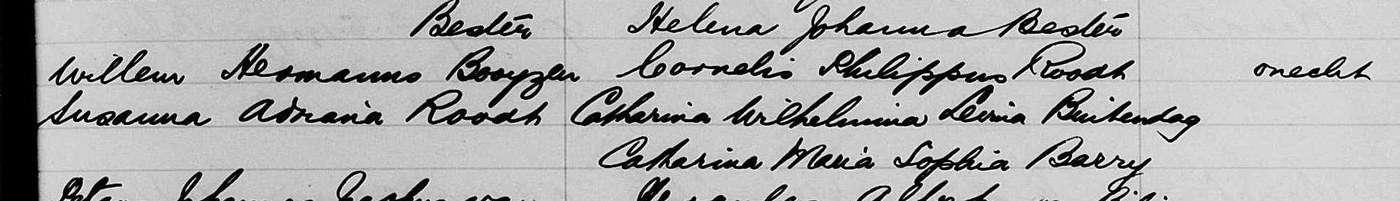 Bester Helena Johanna Bester
Willem Hermanus Booyzen Cornelis Philippus Roodt onecht
Susanna Adriana Roodt Catharina Wilhelmina Levina Buitendag
Catharina Maria Sophia Barry